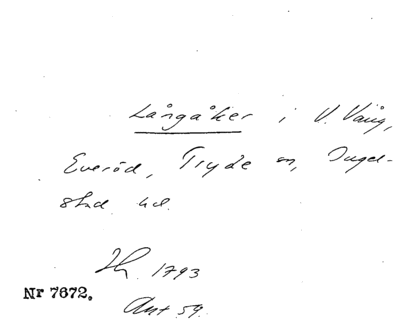 Långåker i V. Vång,
Everöd, Tryde sn, Ingel-
stad hd.
1793
Nr 7672.
Akt 59.